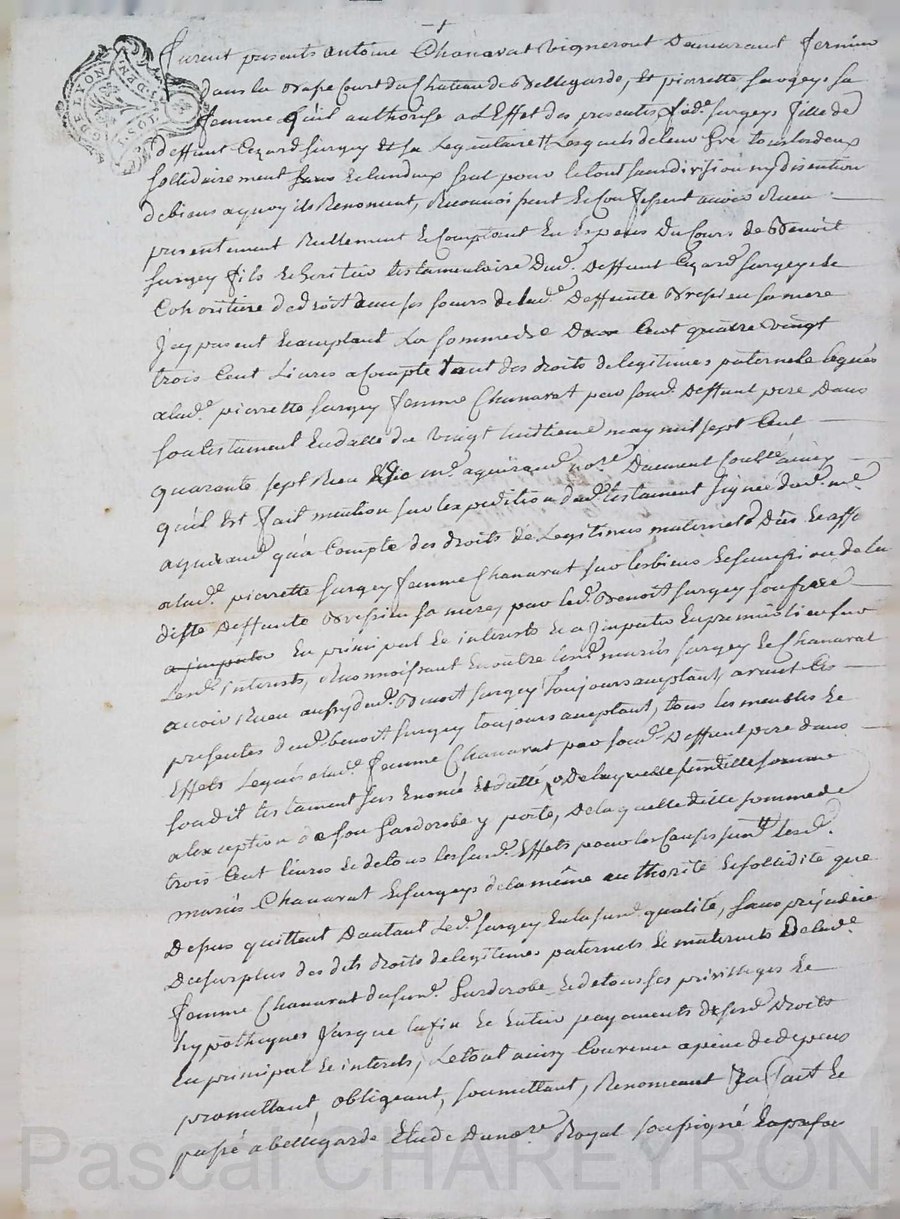 furent presents antoine Chanavat Vigneront Demeurant
dans la Basse Court du Chateau de Bellegarde, Et pierrette surgey sa
femme quil authorise a L'Effet des presentes Lad.e surgeys fille de
deffunt Cezard surgey Et sa Legataire Lesquels de leur Gré tous les deux
sollidairement seul pour le tout sans division ny discution
de biens a quoy ils Renoncent, Reconnoissent Et Confessent avoir Receu
presentement Reellement Et Comptant En Especes Du Cours de Benoit
surgey fils Et heritier testamentaire Dud. Deffunt Cezard surgey Et
Coheritier de droit avec ses soeurs de lad.e Deffunte Bressieu sa mere
Icy present Et acceptant La somme de
trois Cent Livres a Compte tant des droits de legitimes paternels legués
a lad.e pierrette surgey femme Chanavat par sond. Deffunt pere Dans
son testament En datte du Vingt huitieme may mil sept Cent
quarante sept Receu me aguiraud no.re Duement Controllé ainsy
quil Est fait mention sur les pedition dud. testament signée dud. me
aguiraud qua Compte des droits de Legitimes maternels Dûs
a lad.e pierrette surgey femme Chanavat sur les biens Et succession de la
ditte Deffunte Bressieu sa mere, par led. Benoit surgey son frere
En principal Et interests Et a Imputer En premier lieu sur
Lesd. interests, Reconnoissant En outre lesd. mariés surgey Et Chanavat
avoir Receu aussy dud. Benoit surgey toujours acceptant, avant Ces
presentes dud. benoit surgey toujours acceptant, tous les meubles Et
Effets Legués a lad.e femme Chanavat par sond. Deffunt pere dans
soudit testament sus Enoncé Et datté,
a lexception de son Garderobe y porté, De laquelle ditte somme de
trois Cent livres Et de tous les susd. Effets pour les Causes lesd.
mariés Chanavat Et surgeys de la même authorité Et sollidité que
Dessus quittent Dautant Led. surgey En la susd. qualité, sans préjudice
Du surplus des dits droits de legitimes paternels Et maternels De lad.e
femme Chanavat du susd. Garderobe Et de tous ses privilleges Et
hypotheques jusque la fin Et Entier payements de susd. Droits
En principal Et interets, Le tout ainsy Convenu a peine de depens
promettant, obligeant, soumettant, Renonceant fait Et
passé a bellegarde Etude Du no.re Royal soussigné
GDE LYON
Pascal CHAREYRON